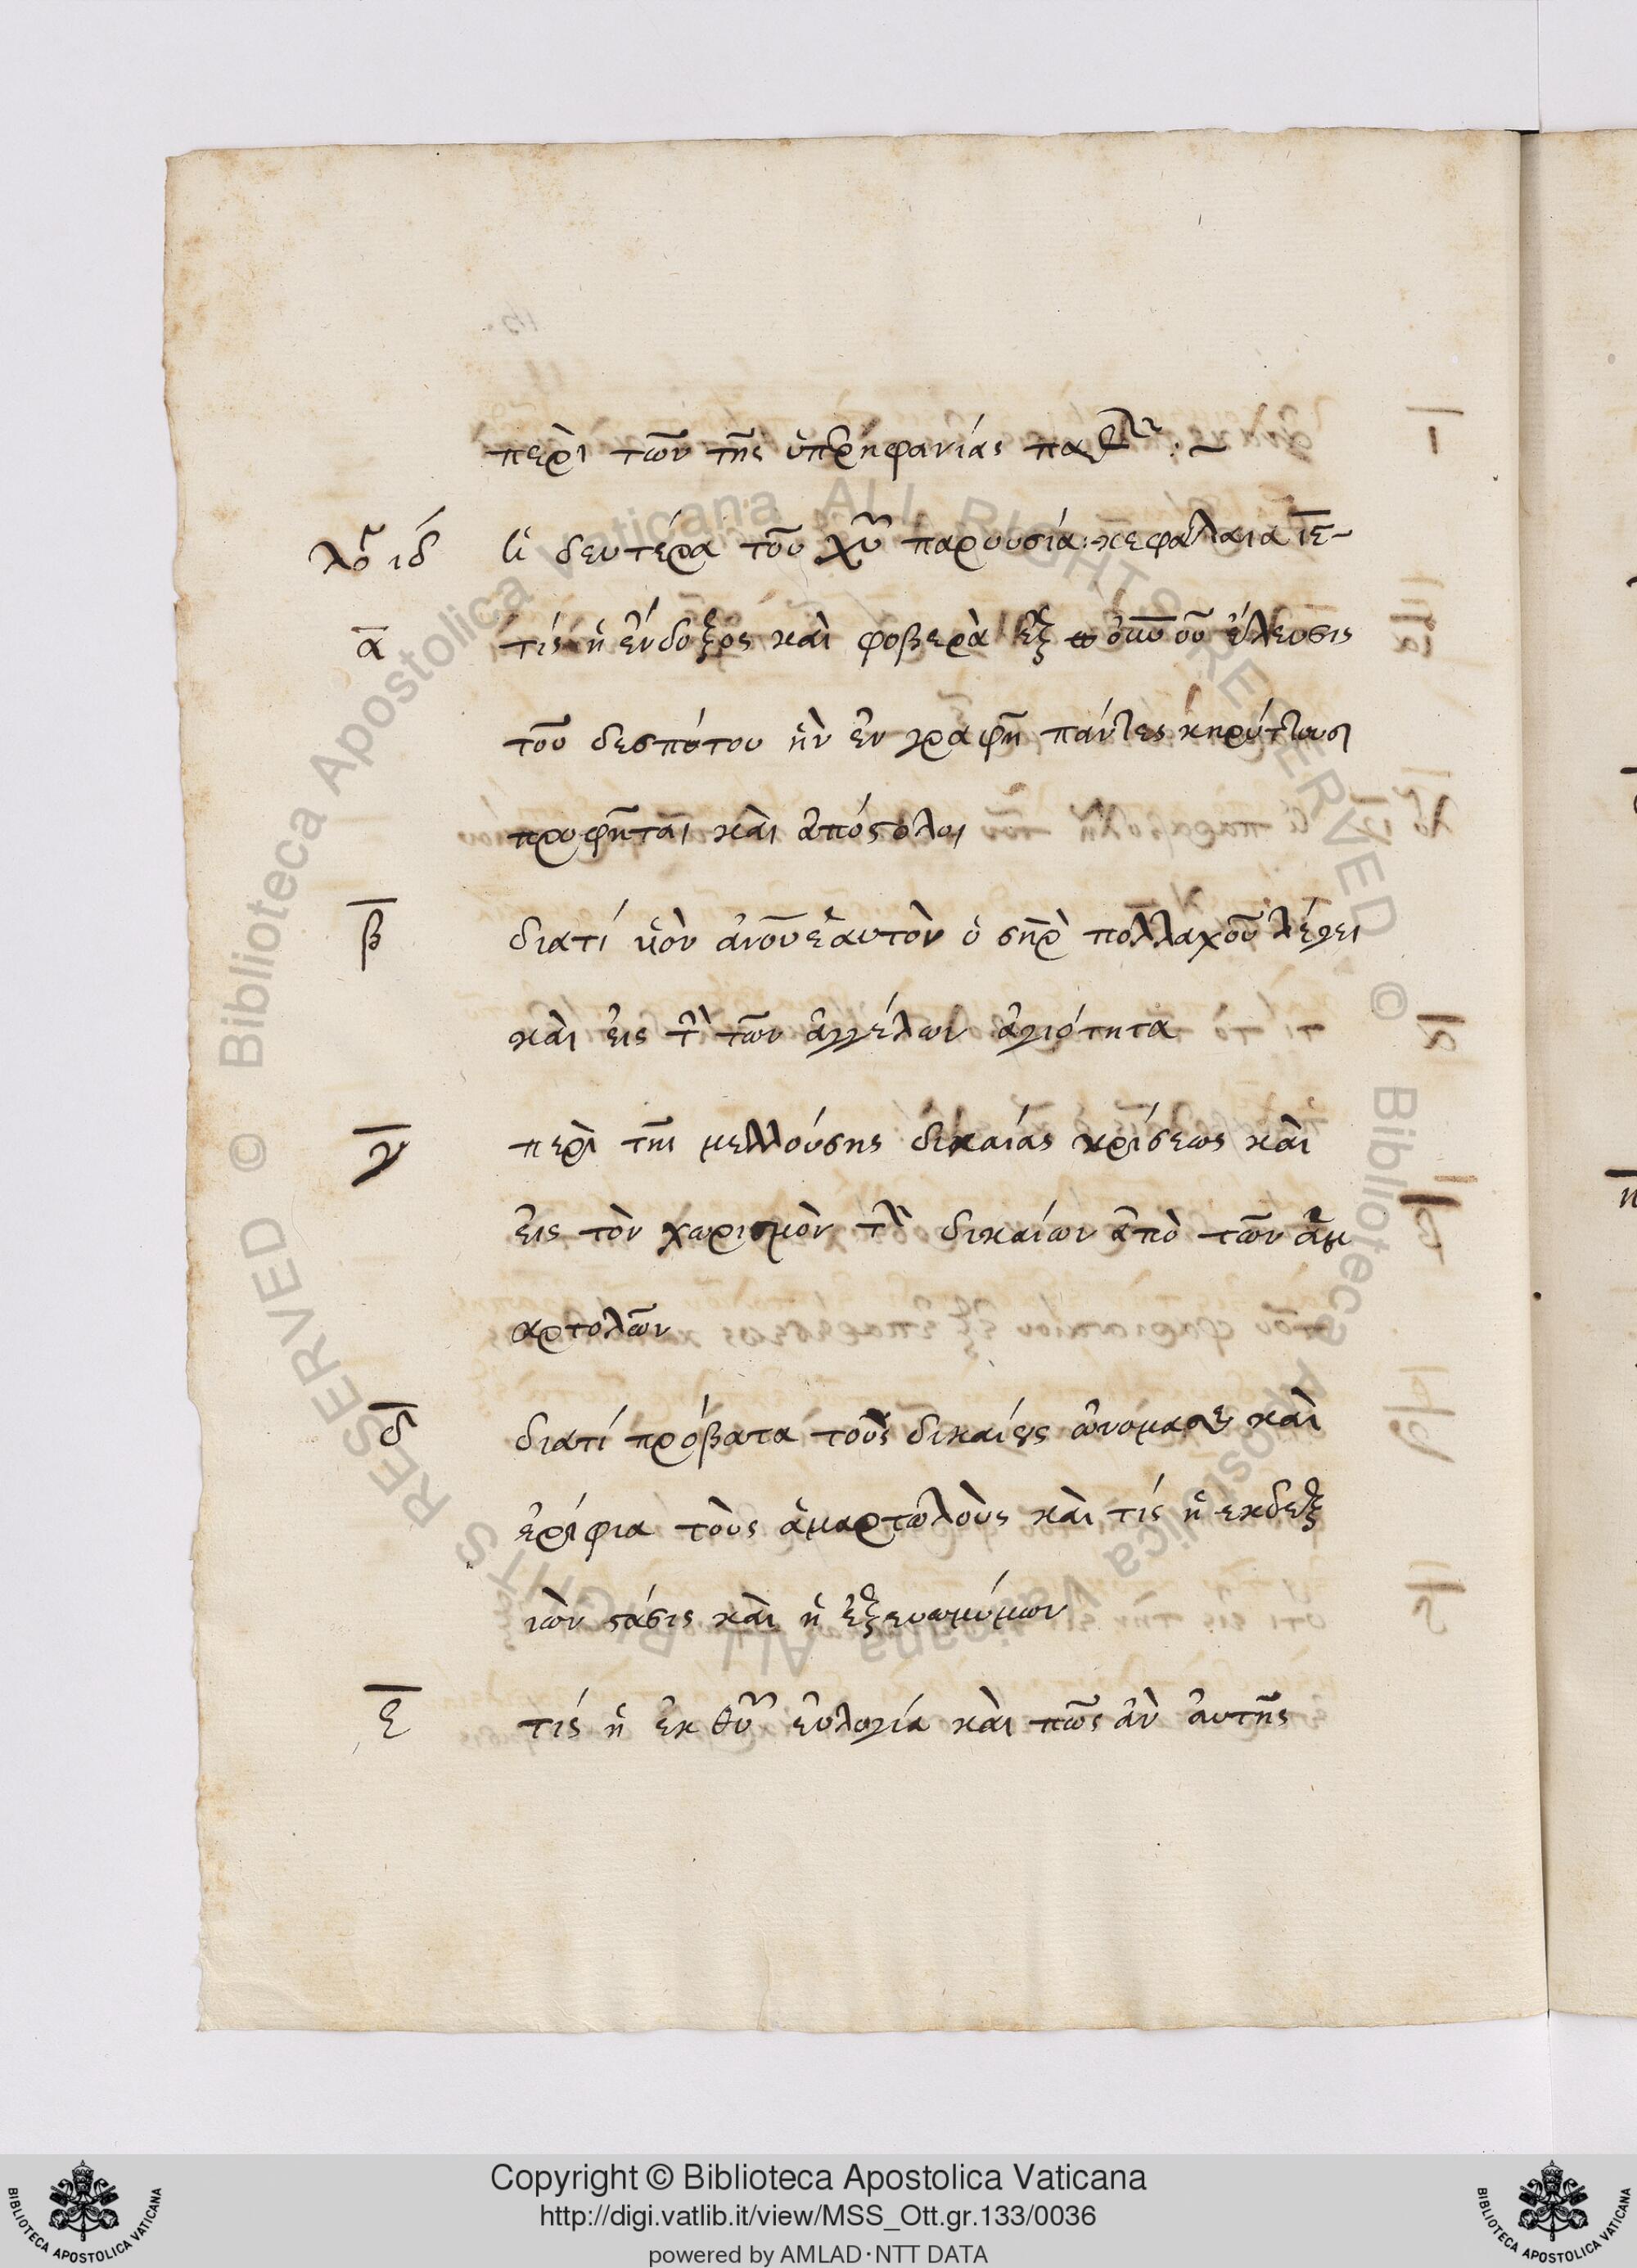 περὶ τῶν τῆς ὑπερηφανίας
λογ ιδ ἡ δευτέρα τοῦ χυ̅ παρουσία: κεφάλαια ιε̅
α̅ τίς ἡ ἔνδοξος καὶ φοβερὰ ἐξ ὀυνοῦ ἔλευσις
τοῦ δεσπότου ἣν ἐν γραφῆ πάντες κηρύττουσι
προφῆται καὶ ἀπόστολοι
β̅ διατί υἱὸν ἀνου ἑαυτὸν ὁ σηρ πολλαχοῦ λέγει
καὶ εἰς τὴν τῶν ἀγγέλων ἁγιότητα
γ̅ περὶ τῆς μελλούσης δικαίας κρίσεως καὶ
εἰς τὸν χωρισμὸν τῶν δικαίων ἀπὸ τῶν ἁμ
αρτολῶν
δ̅ διατί πρόβατα τοὺς δικαίους ὠνόμασε καὶ
ἐρίφια τοὺς ἁμαρτωλοὺς καὶ τίς ἡ εκδεξ
ιῶν στάσις καὶ ἡ ἐξευωνύμων
ε̅ τίς ἡ ἐκ θυ̅ εὐλογία καὶ πῶς ἂν ἀυτῆς
Copyright © Biblioteca Apostolica Vaticana
http://digi.vatlib.it/view/MSS_Ott.gr.133/0036
powered by AMLAD·NTT DATA
BIBLIOTECA APOSTOLICA VATICANA
BIBLIOTECA APOSTOLICA VATICANA
© Biblioteca Apostolica Vaticana ALL RIGHTS RESERVED © Biblioteca Apostolica Vaticana ALL RIGHTS RESERVED